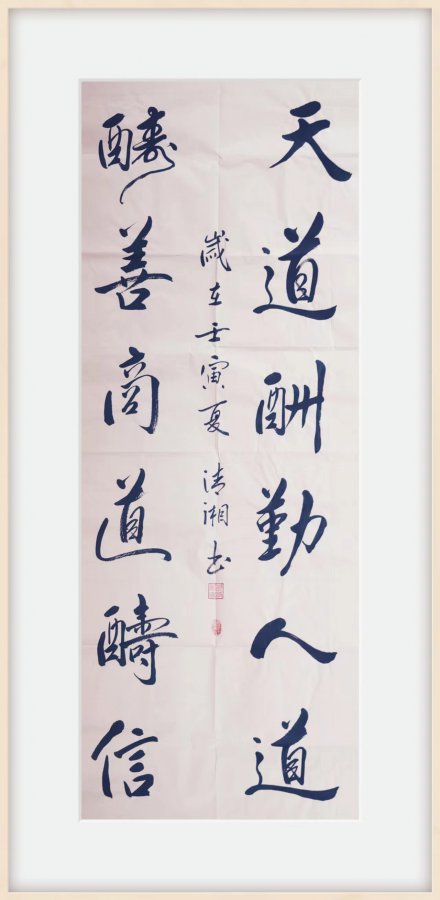 天道酬勤人道
醻善商道醻信
歲在壬寅夏 清湘书